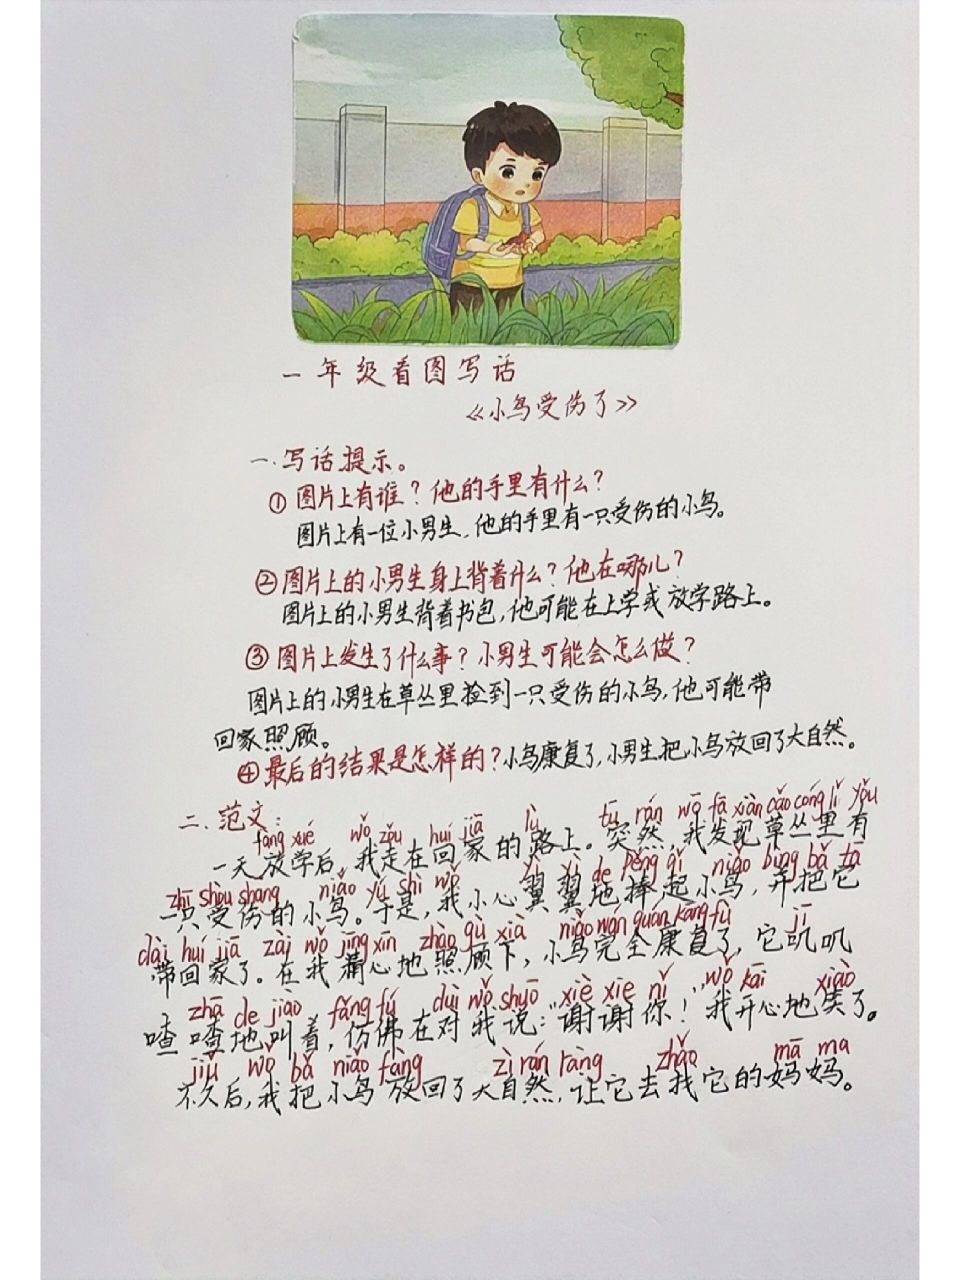 一年级看图写话
《小鸟受伤了》
一、写话提示。
①图片上有谁？他的手里有什么？
图片上有一位小男生，他的手里有一只受伤的小鸟。
②图片上的小男生身上背着什么？他在哪儿？
图片上的小男生背着书包，他可能在上学或放学路上。
③图片上发生了什么事？小男生可能会怎么做？
图片上的小男生在草丛里捡到一只受伤的小鸟，他可能带
回家照顾。
④最后的结果是怎样的？小鸟康复了，小男生把小鸟放回了大自然。
二、范文：
fàng xué wǒ zǒu huí jiā lù tū rán wǒ fā xiàn cǎo cóng lǐ yǒu
一天放学后，我走在回家的路上。突然，我发现草丛里有
zhī shòu shang niǎo yú shì wǒ yì yì de pěng qǐ niǎo bìng bǎ tā
一只受伤的小鸟。于是，我小心翼翼地捧起小鸟，并把它
dài huí jiā zài wǒ jīng xīn zhào gù xià niǎo wán quán kāng fù jī
带回家了。在我精心地照顾下，小鸟完全康复了，它叽叽
zhā de jiào fǎng fú duì wǒ shuō xiè xie nǐ wǒ kāi xiào
喳喳地叫着，仿佛在对我说：“谢谢你！”我开心地笑了。
jiǔ wǒ bǎ niǎo fàng zì rán ràng zhǎo mā ma
不久后，我把小鸟放回了大自然，让它去找它的妈妈。